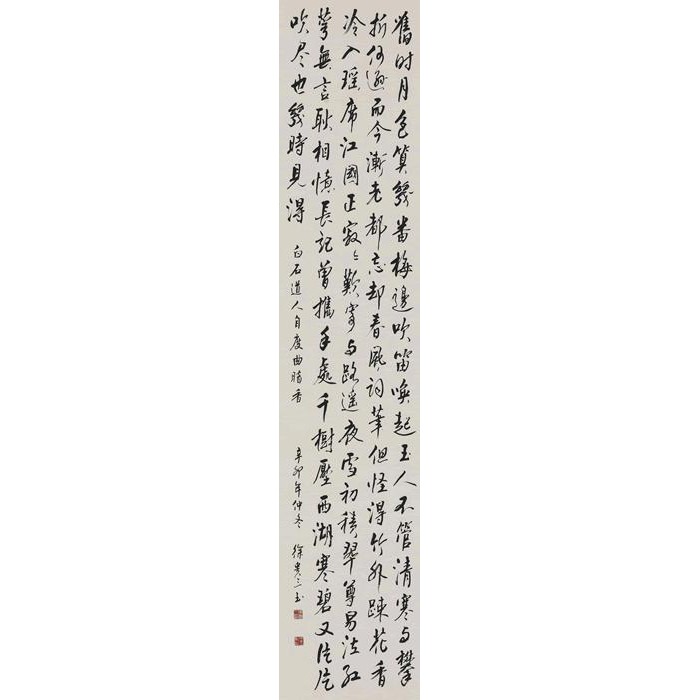 舊时月色算幾番梅邊吹笛喚起玉人不管清寒与攀
折何遜而今漸老都忘却春風词筆但怪得竹外踈花香
冷入瑶席江國正寂々歎寄与路遥夜雪初積翠尊易泣红
萼無言耿相憶長記曾攜手處千樹壓西湖寒碧又片片
吹尽也幾時見得
白石道人自度曲暗香
辛卯年仲冬 徐